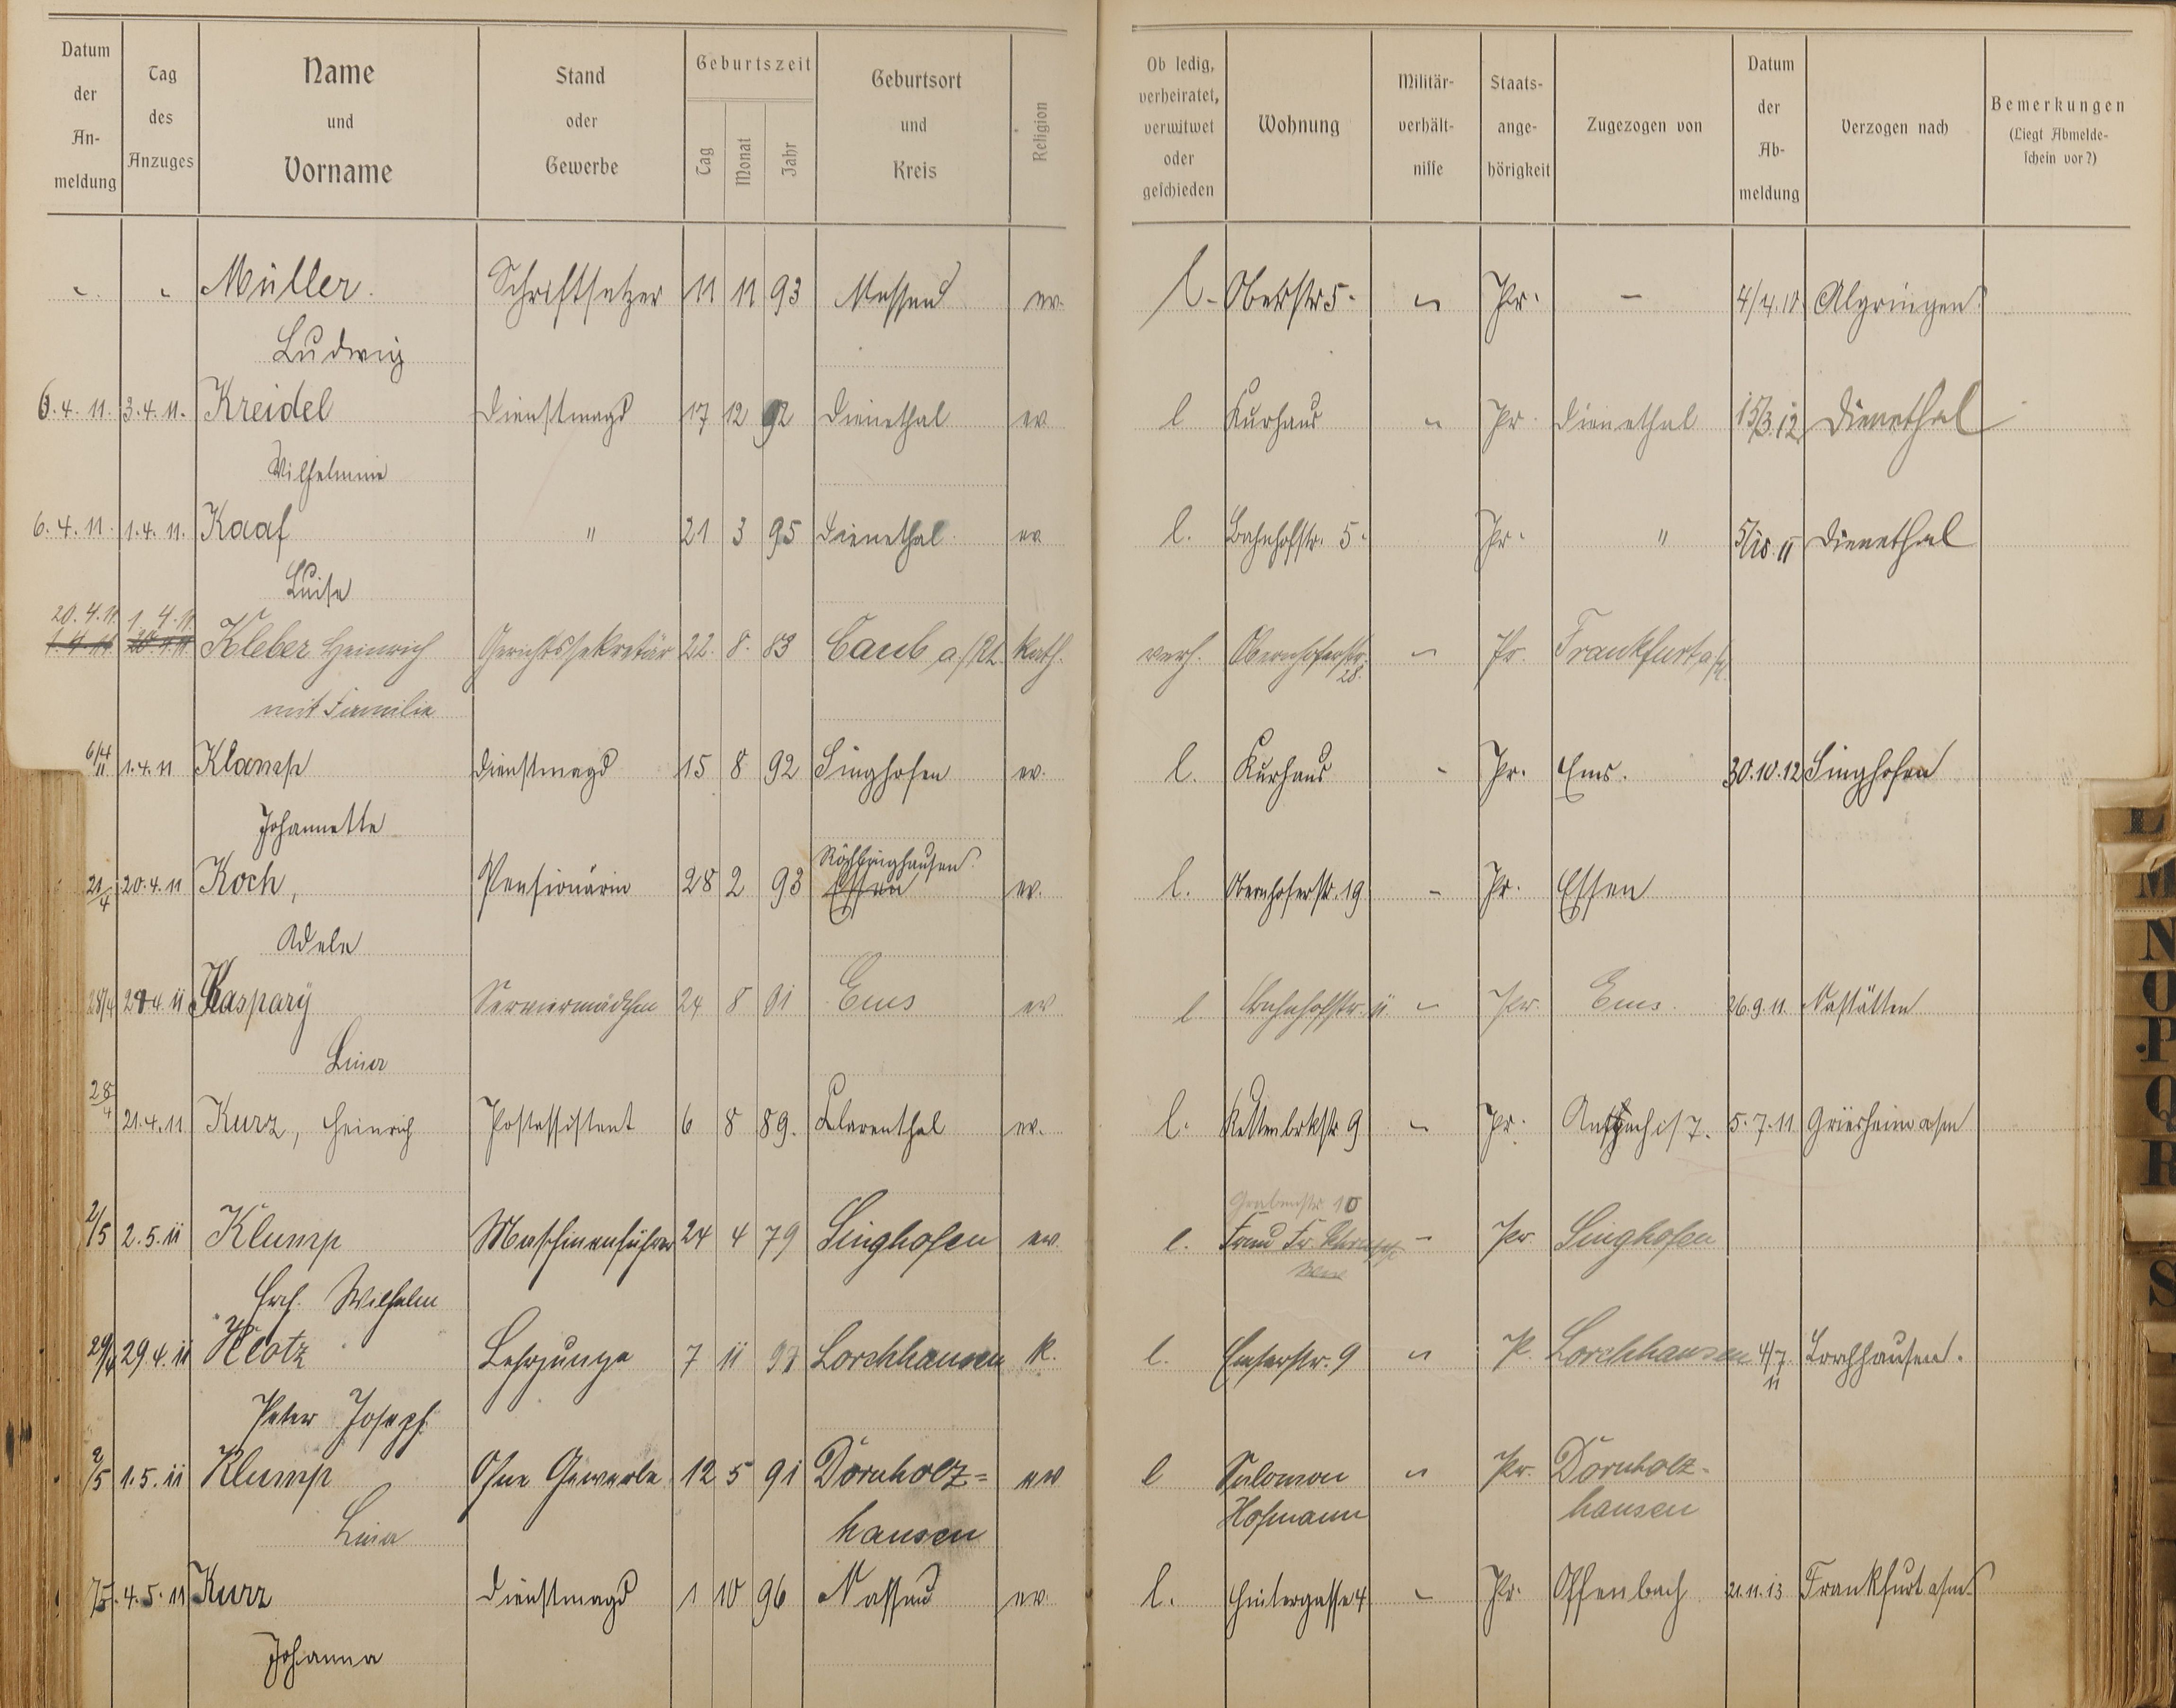 Datum der An- meldung | Tag des Anzuges | Name und Vorname | Stand oder Gewerbe | Geburtszeit Tag Monat Jahr | Geburtsort und Kreis | Religion | Ob ledig, verheiratet, verwitwet oder geschieden | Wohnung | Militär- verhält- nisse | Staats- ange- hörigkeit | Zugezogen von | Datum der Ab- meldung | Verzogen nach | Bemerkungen (Liegt Abmelde- schein vor?)
" " Müller. Schriftsetzer 11 11 93 Nassau ev. l. Oberstr 5. " Pr. – 4/4.10 Algringen
Ludwig
6.4.11. 3.4.11. Kreidel Dienstmagd 17 12 92 Dienethal ev l Kurhaus " Pr Dienethal 15/3.12 Dienethal
Wilhelmine
6.4.11. 1.4.11. Kaaf " 21 3 95 Dienethal ev l. Bahnhofstr. 5. Pr. " 5/10.11 Dienethal
Luise
20.4.11. 1.4.11.
1.4.11 20.4.11. Kleber Heinrich Gerichtssekretär 22. 8. 83 Caub a/Rh. kath. verh. Obernhoferstr. 28. " Pr. Frankfurt a/M.
mit Familie
6/4 11 1.4.11 Klamp Dienstmagd 15 8 92 Singhofen ev. l. Kurhaus " Pr. Ems. 30.10.12 Singhofen
Johannette
Röhlinghausen
21/4 20.4.11 Koch, Pensionärin 28 2 93 Essen ev. l. Obernhoferstr. 19 " Pr. Essen
Adele
28/4 28.4.11 Kaspary Serviermädchen 24 8 91 Ems ev l Bahnhofstr. 11 " Pr. Ems. 26.9.11. Nastätten
Lina
28/4 21.4.11 Kurz, Heinrich Postassistent 6 8 89. Klarenthal ev. l. Kettenbrkstr 9 " Pr. Anspach i/T. 5.7.11 Griesheim a/m
Grabenstr. 10
2/5 2.5.11 Klump Maschinenführer 24 4 79 Singhofen ev l. Frau Fr. " Pr Singhofen
Hrch. Wilhelm
29/4 29.4.11 Klotz Lehrjunge 7 11 97 Lorchhausen K. l. Emserstr. 9 " P. Lorchhausen 4/7 11 Lorchhausen.
Peter Joseph
2/5 1.5.11 Klump Ohne Gewerbe 12 5 91 Dornholz= ev l Salomon " Pr. Dornholz-
Lina hausen Hofmann hausen
7/5. 4.5.11 Kurz Dienstmagd 1 10 96 Nassau ev l. Hintergasse 4 " Pr. Offenbach 21.11.13 Frankfurt a/m.
Johanna
L
M
N
O
P
Q
R
S